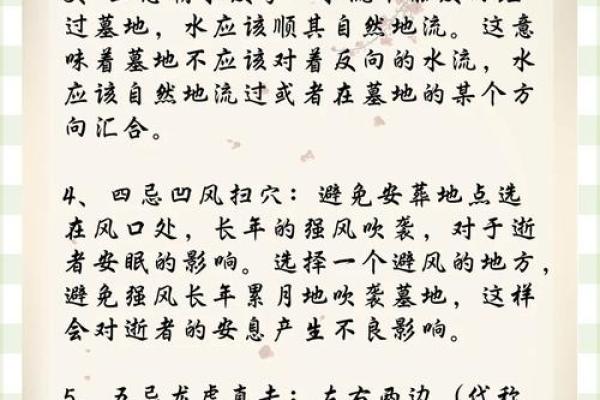 过墓地，水应该顺其自然地流。这意
味着墓地不应该对着反向的水流，水
应该自然地流过或者在墓地的某个方
向汇合。
4、四忌凹风扫穴：避免安葬地点选
在风口处，长年的强风吹袭，对于逝
者安眠的影响。选择一个避风的地方，
避免强风长年累月地吹袭墓地，这样
会对逝者的安息产生不良影响。
5、五忌龙虎直去：左右两边（代称